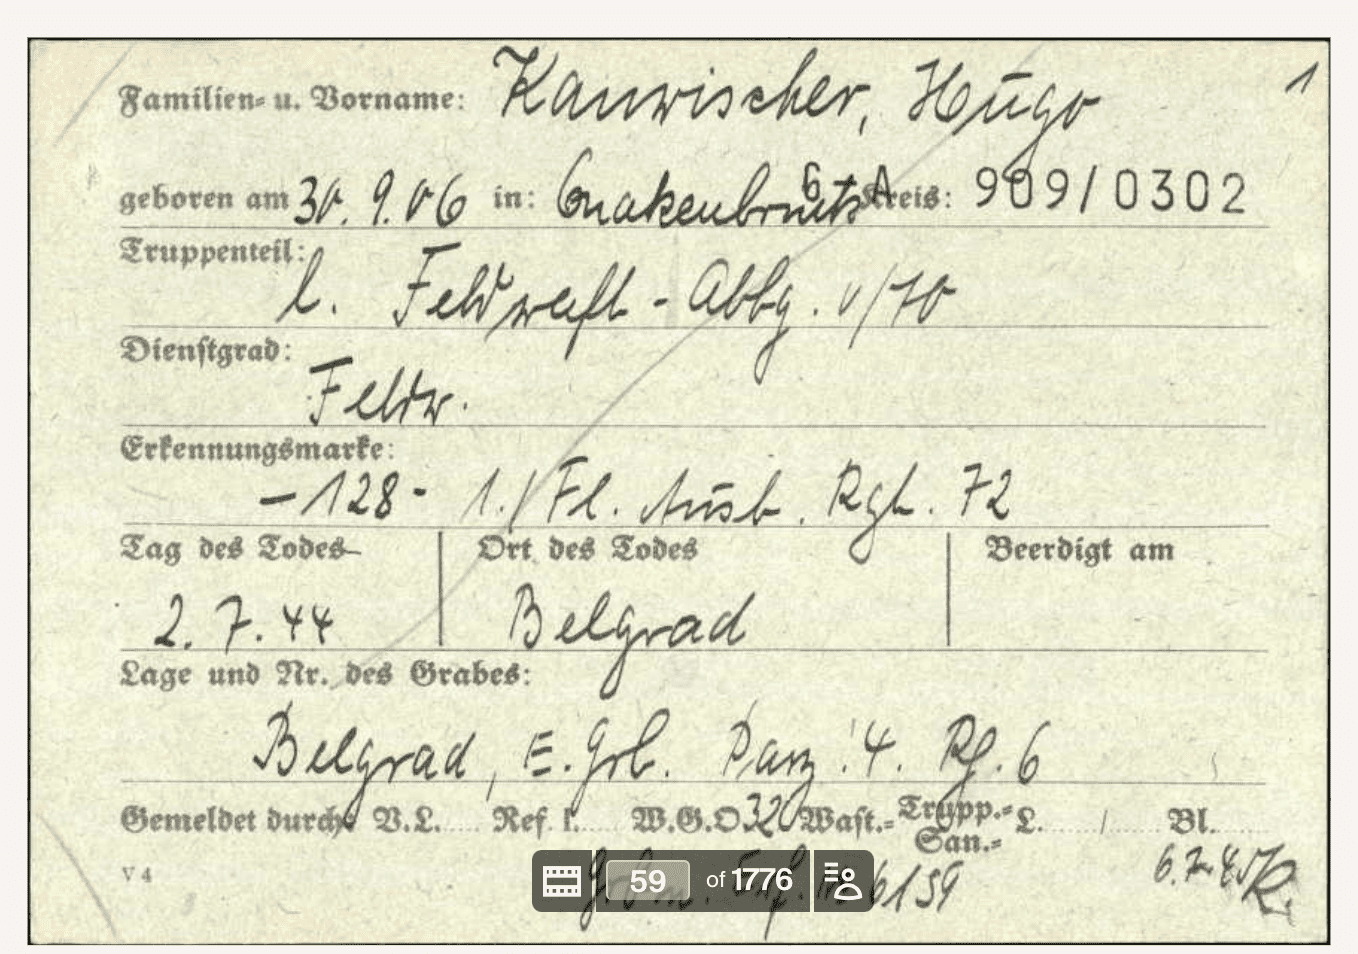 Familien- u. Vorname: Kanwischer, Hugo 1
geboren am 30. 9. 06 in: Kreis: 909/0302
Truppenteil:
l. Feldwerft-Abtlg. v/70
Dienstgrad:
Feldw.
Erkennungsmarke:
-128- 1./Fl. Ausb. Rgt. 72
Tag des Todes Ort des Todes Beerdigt am
2. 7. 44 Belgrad
Lage und Nr. des Grabes:
Belgrad, E. Grb. Panz. 4. Rg. 6
Gemeldet durch: V.L. Ref. I. W.G.O. 32 Wast.- Trupp.- L. / Bl.
San.-
V 4
59 of 1776
6139